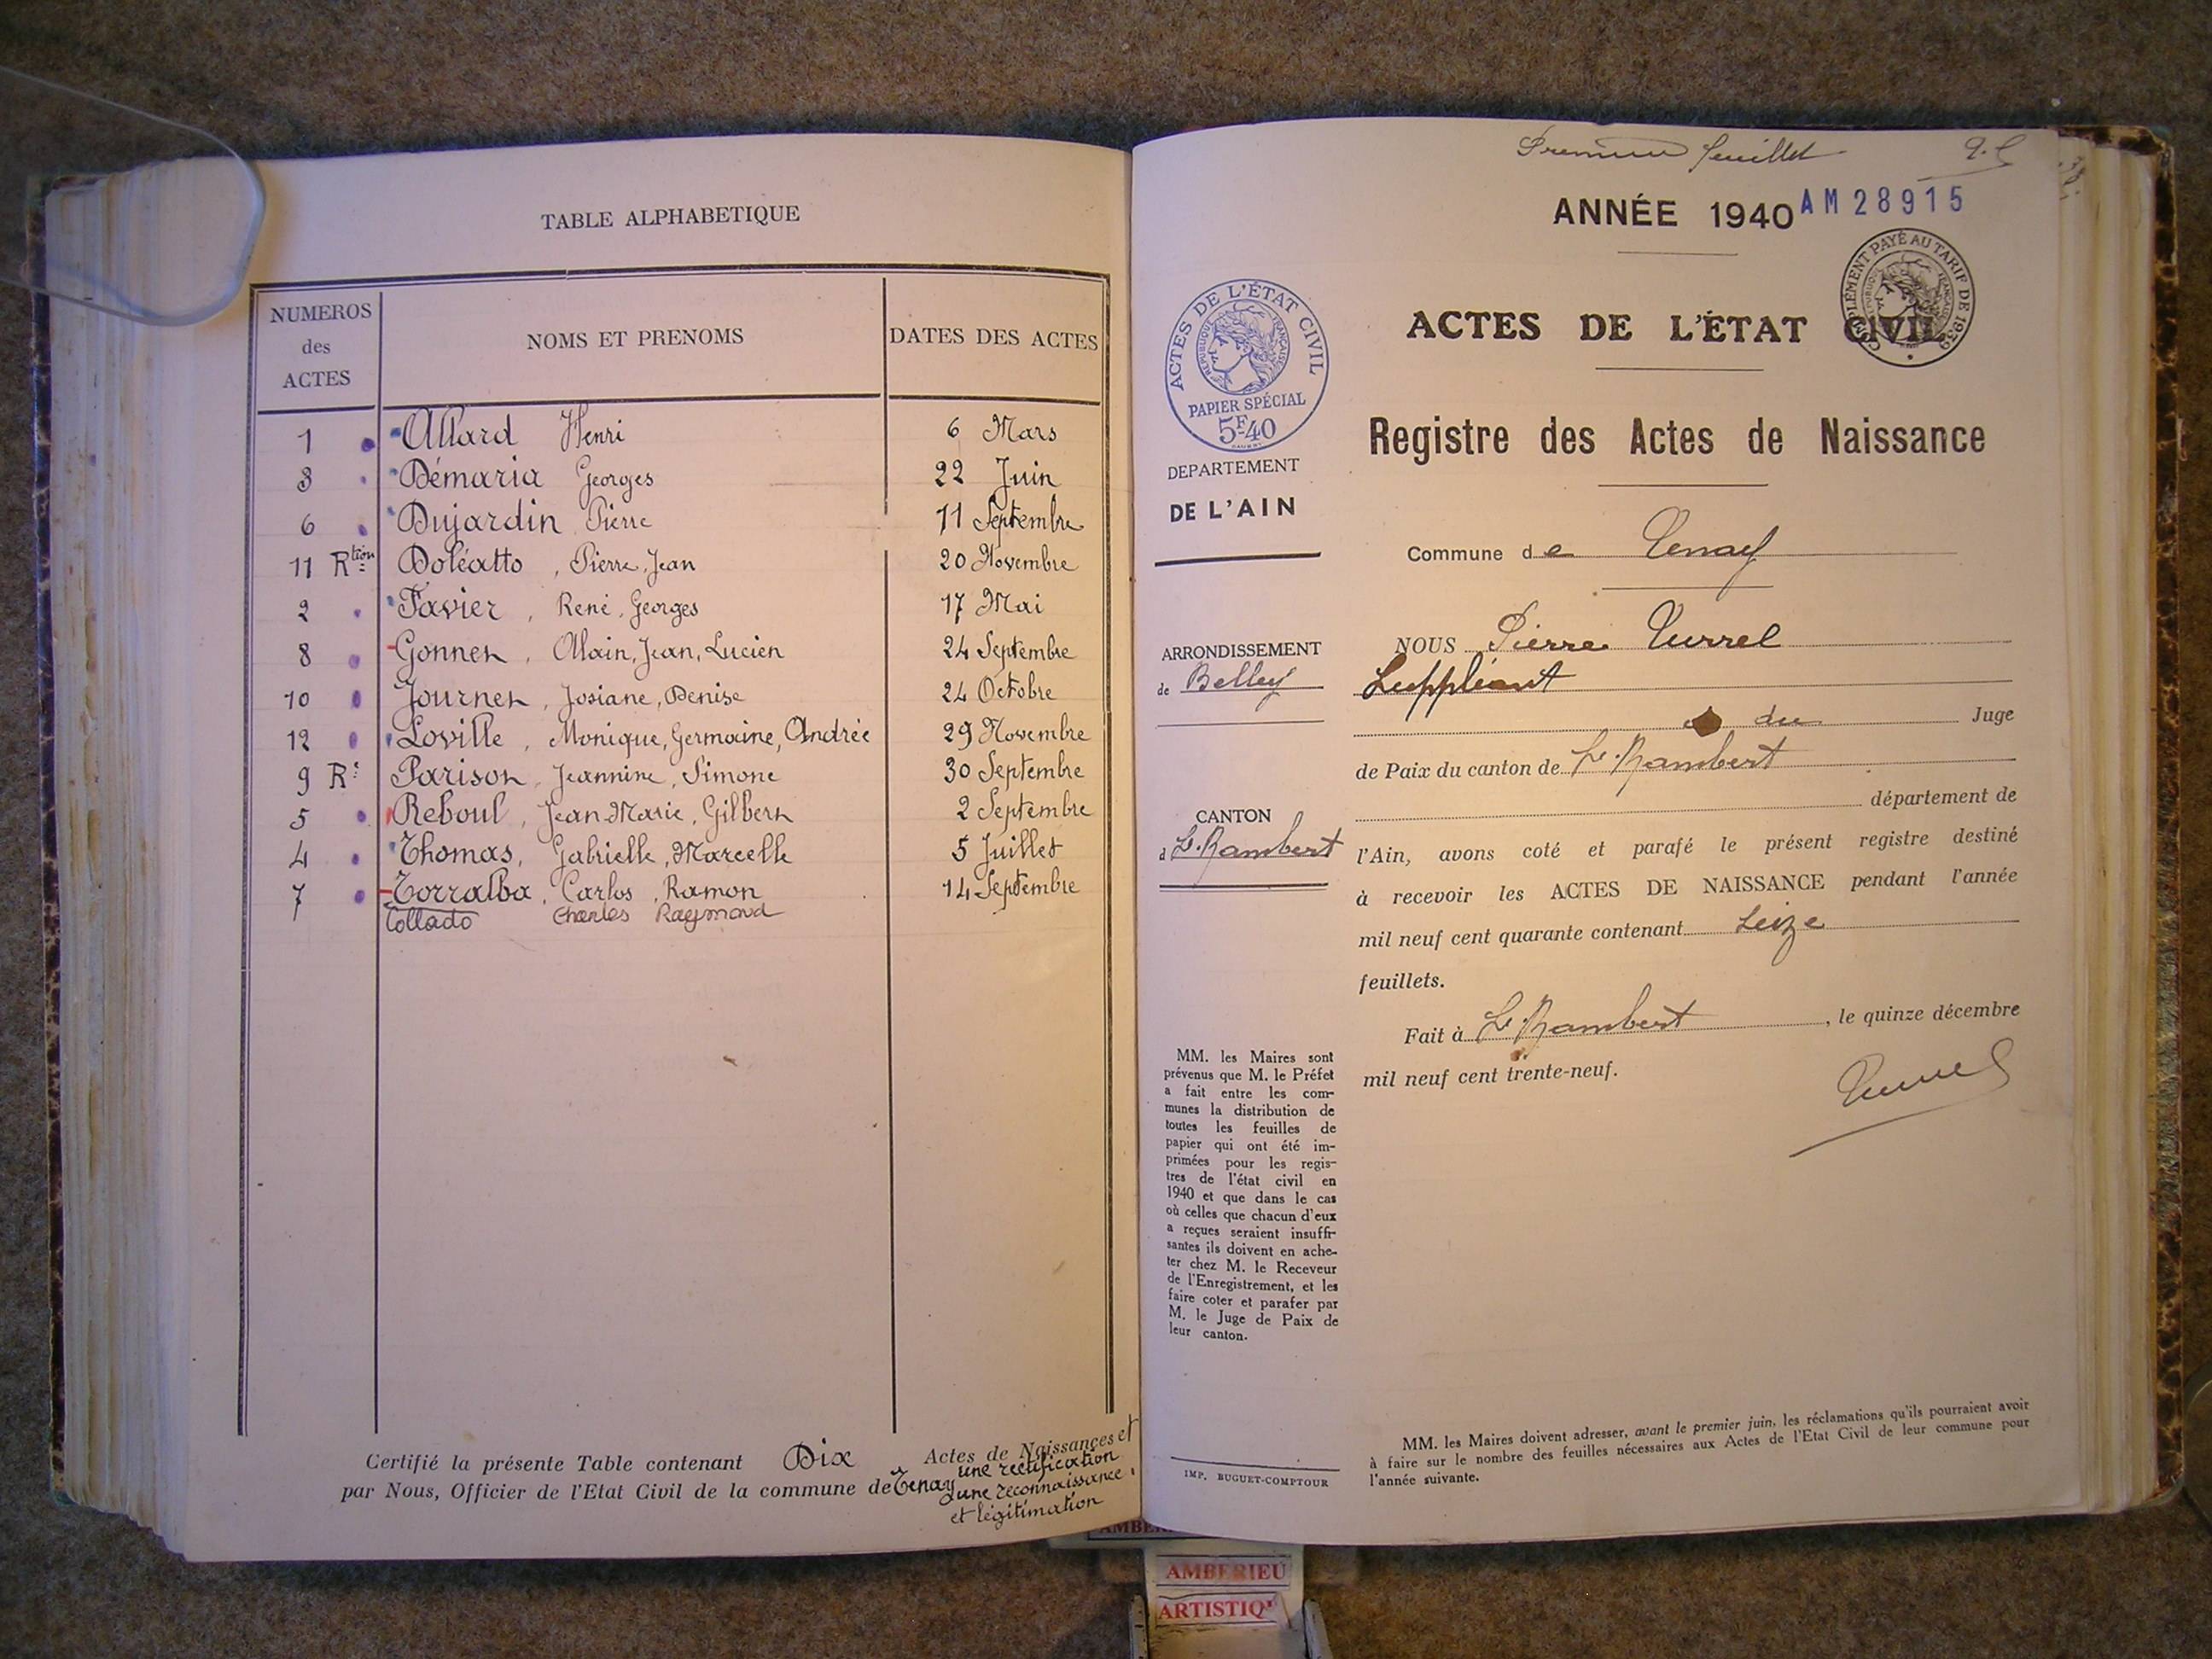 TABLE ALPHABETIQUE
NUMEROS des ACTES NOMS ET PRENOMS DATES DES ACTES
1 Allard Henri 6 Mars
3 Démaria Georges 22 Juin
6 Dujardin Pierre 11 Septembre
11 Rtion Doléatto, Pierre, Jean 20 Novembre
2 Favier, René, Georges 17 Mai
8 Gonner, Alain, Jean, Lucien 24 Septembre
10 Journer, Josiane, Denise 24 Octobre
12 Loville, Monique, Germaine, Andrée 29 Novembre
9 R Parison, Jeannine, Simone 30 Septembre
5 Reboul, Jean-Marie, Gilbert 2 Septembre
4 Thomas, Gabrielle, Marcelle 5 Juillet
7 Torralba, Carlos, Ramon 14 Septembre
Collado Charles Raymond
Certifié la présente Table contenant Dix Actes de Naissances et
une rectification
par Nous, Officier de l'Etat Civil de la commune de Tenay
une reconnaissance,
et légitimation
Premier feuillet
ANNÉE 1940
AM28915
COMPLÉMENT PAYÉ AU TARIF DE 1939
ACTES DE L'ÉTAT CIVIL
ACTES DE L'ÉTAT CIVIL
RÉPUBLIQUE FRANÇAISE
PAPIER SPÉCIAL
5F40
DEPARTEMENT
DE L'AIN
Registre des Actes de Naissance
Commune de Tenay
ARRONDISSEMENT
de Belley
CANTON
d St. Rambert
NOUS Pierre Turrel
Suppléant
du Juge
de Paix du canton de St. Rambert
département de
l'Ain, avons coté et parafé le présent registre destiné
à recevoir les ACTES DE NAISSANCE pendant l'année
mil neuf cent quarante contenant Seize
feuillets.
Fait à St. Rambert, le quinze décembre
mil neuf cent trente-neuf.
Turrel
MM. les Maires sont
prévenus que M. le Préfet
a fait entre les com-
munes la distribution de
toutes les feuilles de
papier qui ont été im-
primées pour les regis-
tres de l'état civil en
1940 et que dans le cas
où celles que chacun d'eux
a reçues seraient insuffi-
santes ils doivent en ache-
ter chez M. le Receveur
de l'Enregistrement, et les
faire coter et parafer par
M. le Juge de Paix de
leur canton.
IMP. BUGUET-COMPTOUR
MM. les Maires doivent adresser, avant le premier juin, les réclamations qu'ils pourraient avoir
à faire sur le nombre des feuilles nécessaires aux Actes de l'Etat Civil de leur commune pour
l'année suivante.
AMBERIEU
ARTISTIQ